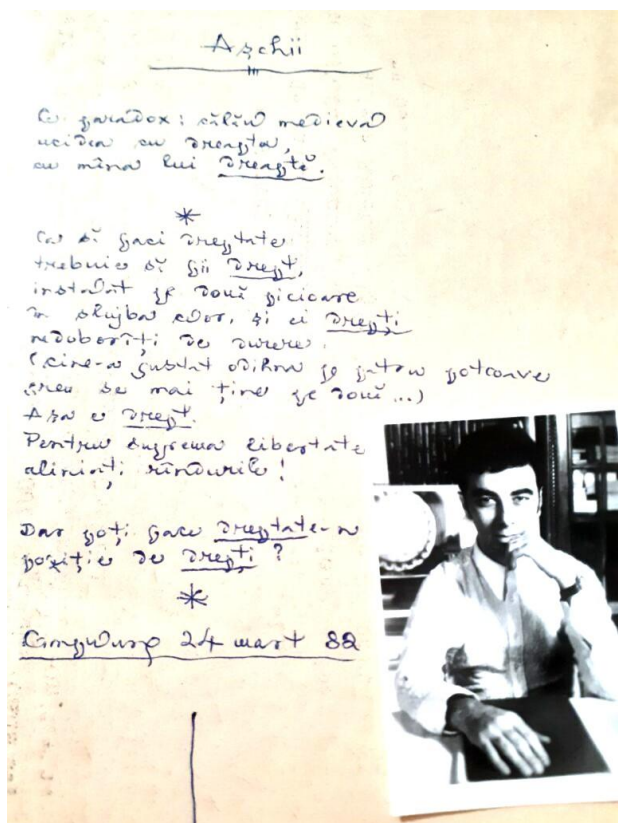 Așchii
Ce paradox: călăul medieval
ucidea cu dreapta,
cu mîna lui dreaptă.
*
Ca să faci dreptate
trebuie să fii drept,
instalat pe două picioare
în slujba celor, și ei drepți
nedoborîți de durere.
(cine-a gustat odihna pe patru potcoave
greu se mai ține pe două...)
Așa e drept.
Pentru suprema libertate
aliniați rîndurile!
Dar poți face dreptate-n
poziție de drepți?
*
Cîmpulung 24 mart 82